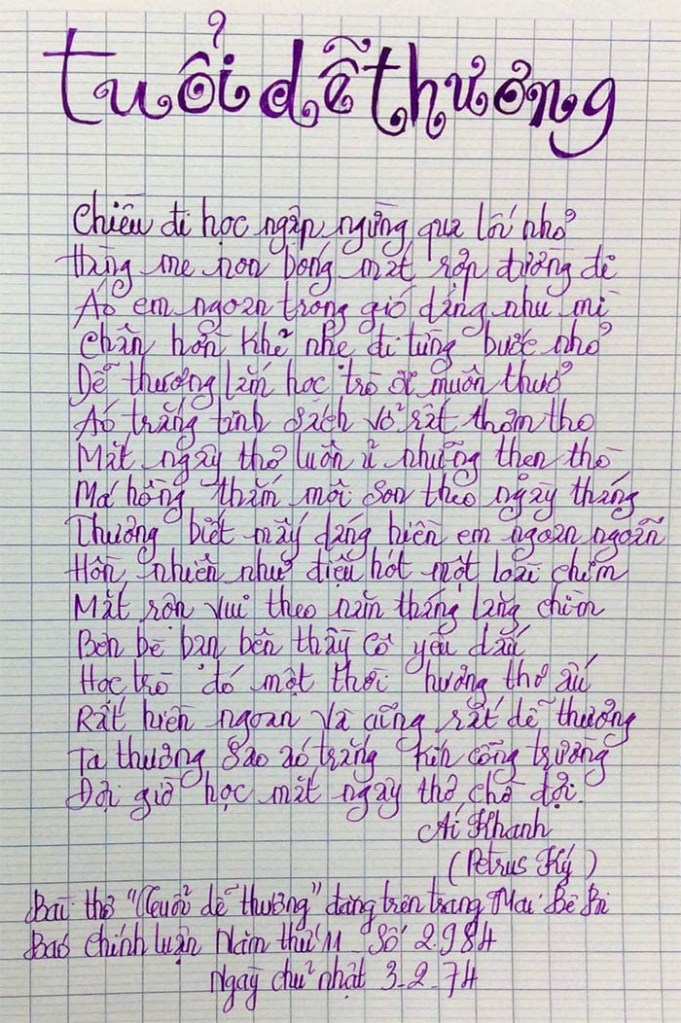 tuổi dễ thương
Chiều đi học ngập ngừng qua lối nhỏ
Hàng me non bóng mát rợp đường đê
Áo em ngoan trong gió dáng nhu mì
Chân hồn khẽ nhẹ đi từng bước nhỏ
Dễ thương lắm học trò ơi muôn thuở
Áo trắng tinh sách vở rất thơm tho
Mắt ngây thơ luôn ủ những thẹn thò
Má hồng thắm môi son theo ngày tháng
Thương biết mấy dáng hiền em ngoan ngoãn
Hồn nhiên như điệu hót một loài chim
Mắt rộn vui theo năm tháng lặng chìm
Bên bè bạn bên thầy cô yêu dấu
Học trò đó một thời hương thơ ấu
Rất hiền ngoan và cũng rất dễ thương
Ta thương sao áo trắng kín cổng trường
Đợi giờ học mắt ngây thơ chờ đợi.
Ái Khanh
(Petrus Ký)
Bài thơ "Tuổi dễ thương" đăng trên trang Mai Bê Bi
Báo Chính luận Năm thứ 11 _ Số 2.984
Ngày chủ nhật 3-2-74